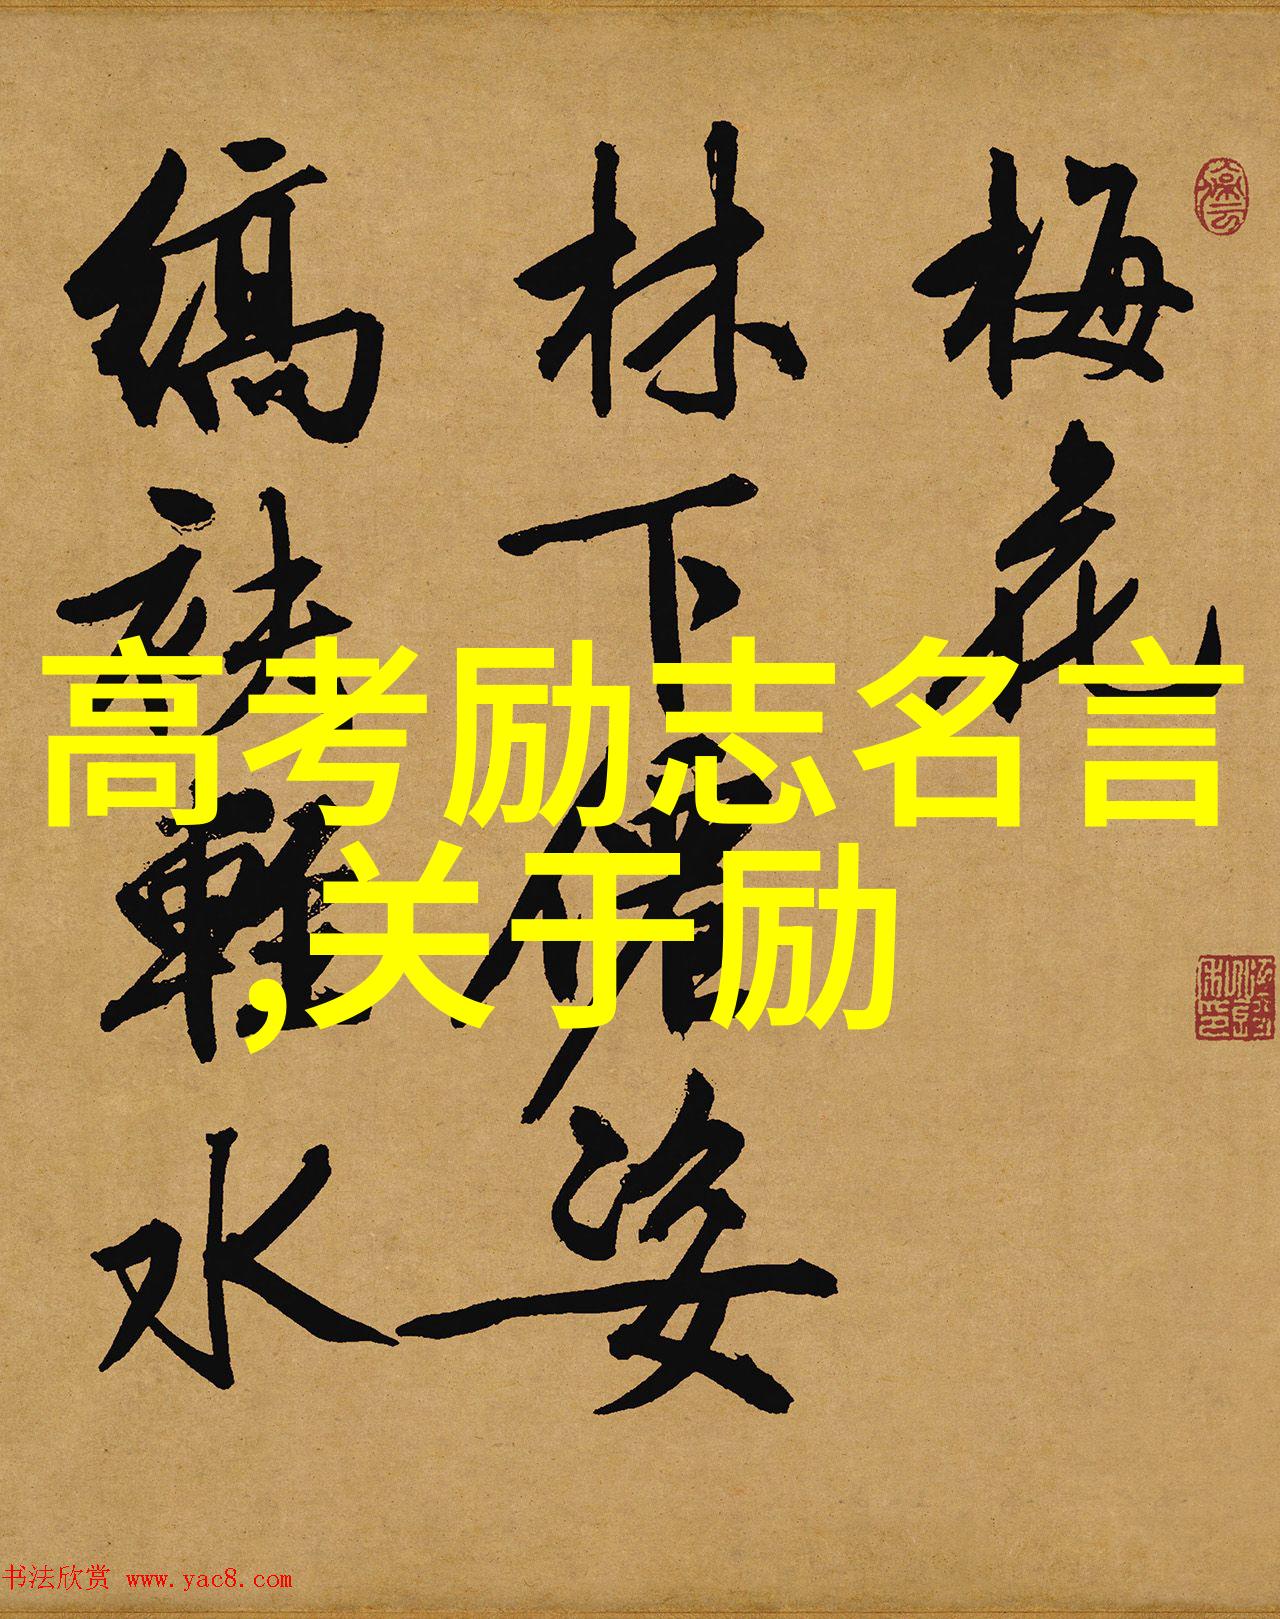 梅花
林下僊姿
缟袂軽水
高考励志名言
,关于励
书法欣赏 www.yac8.com